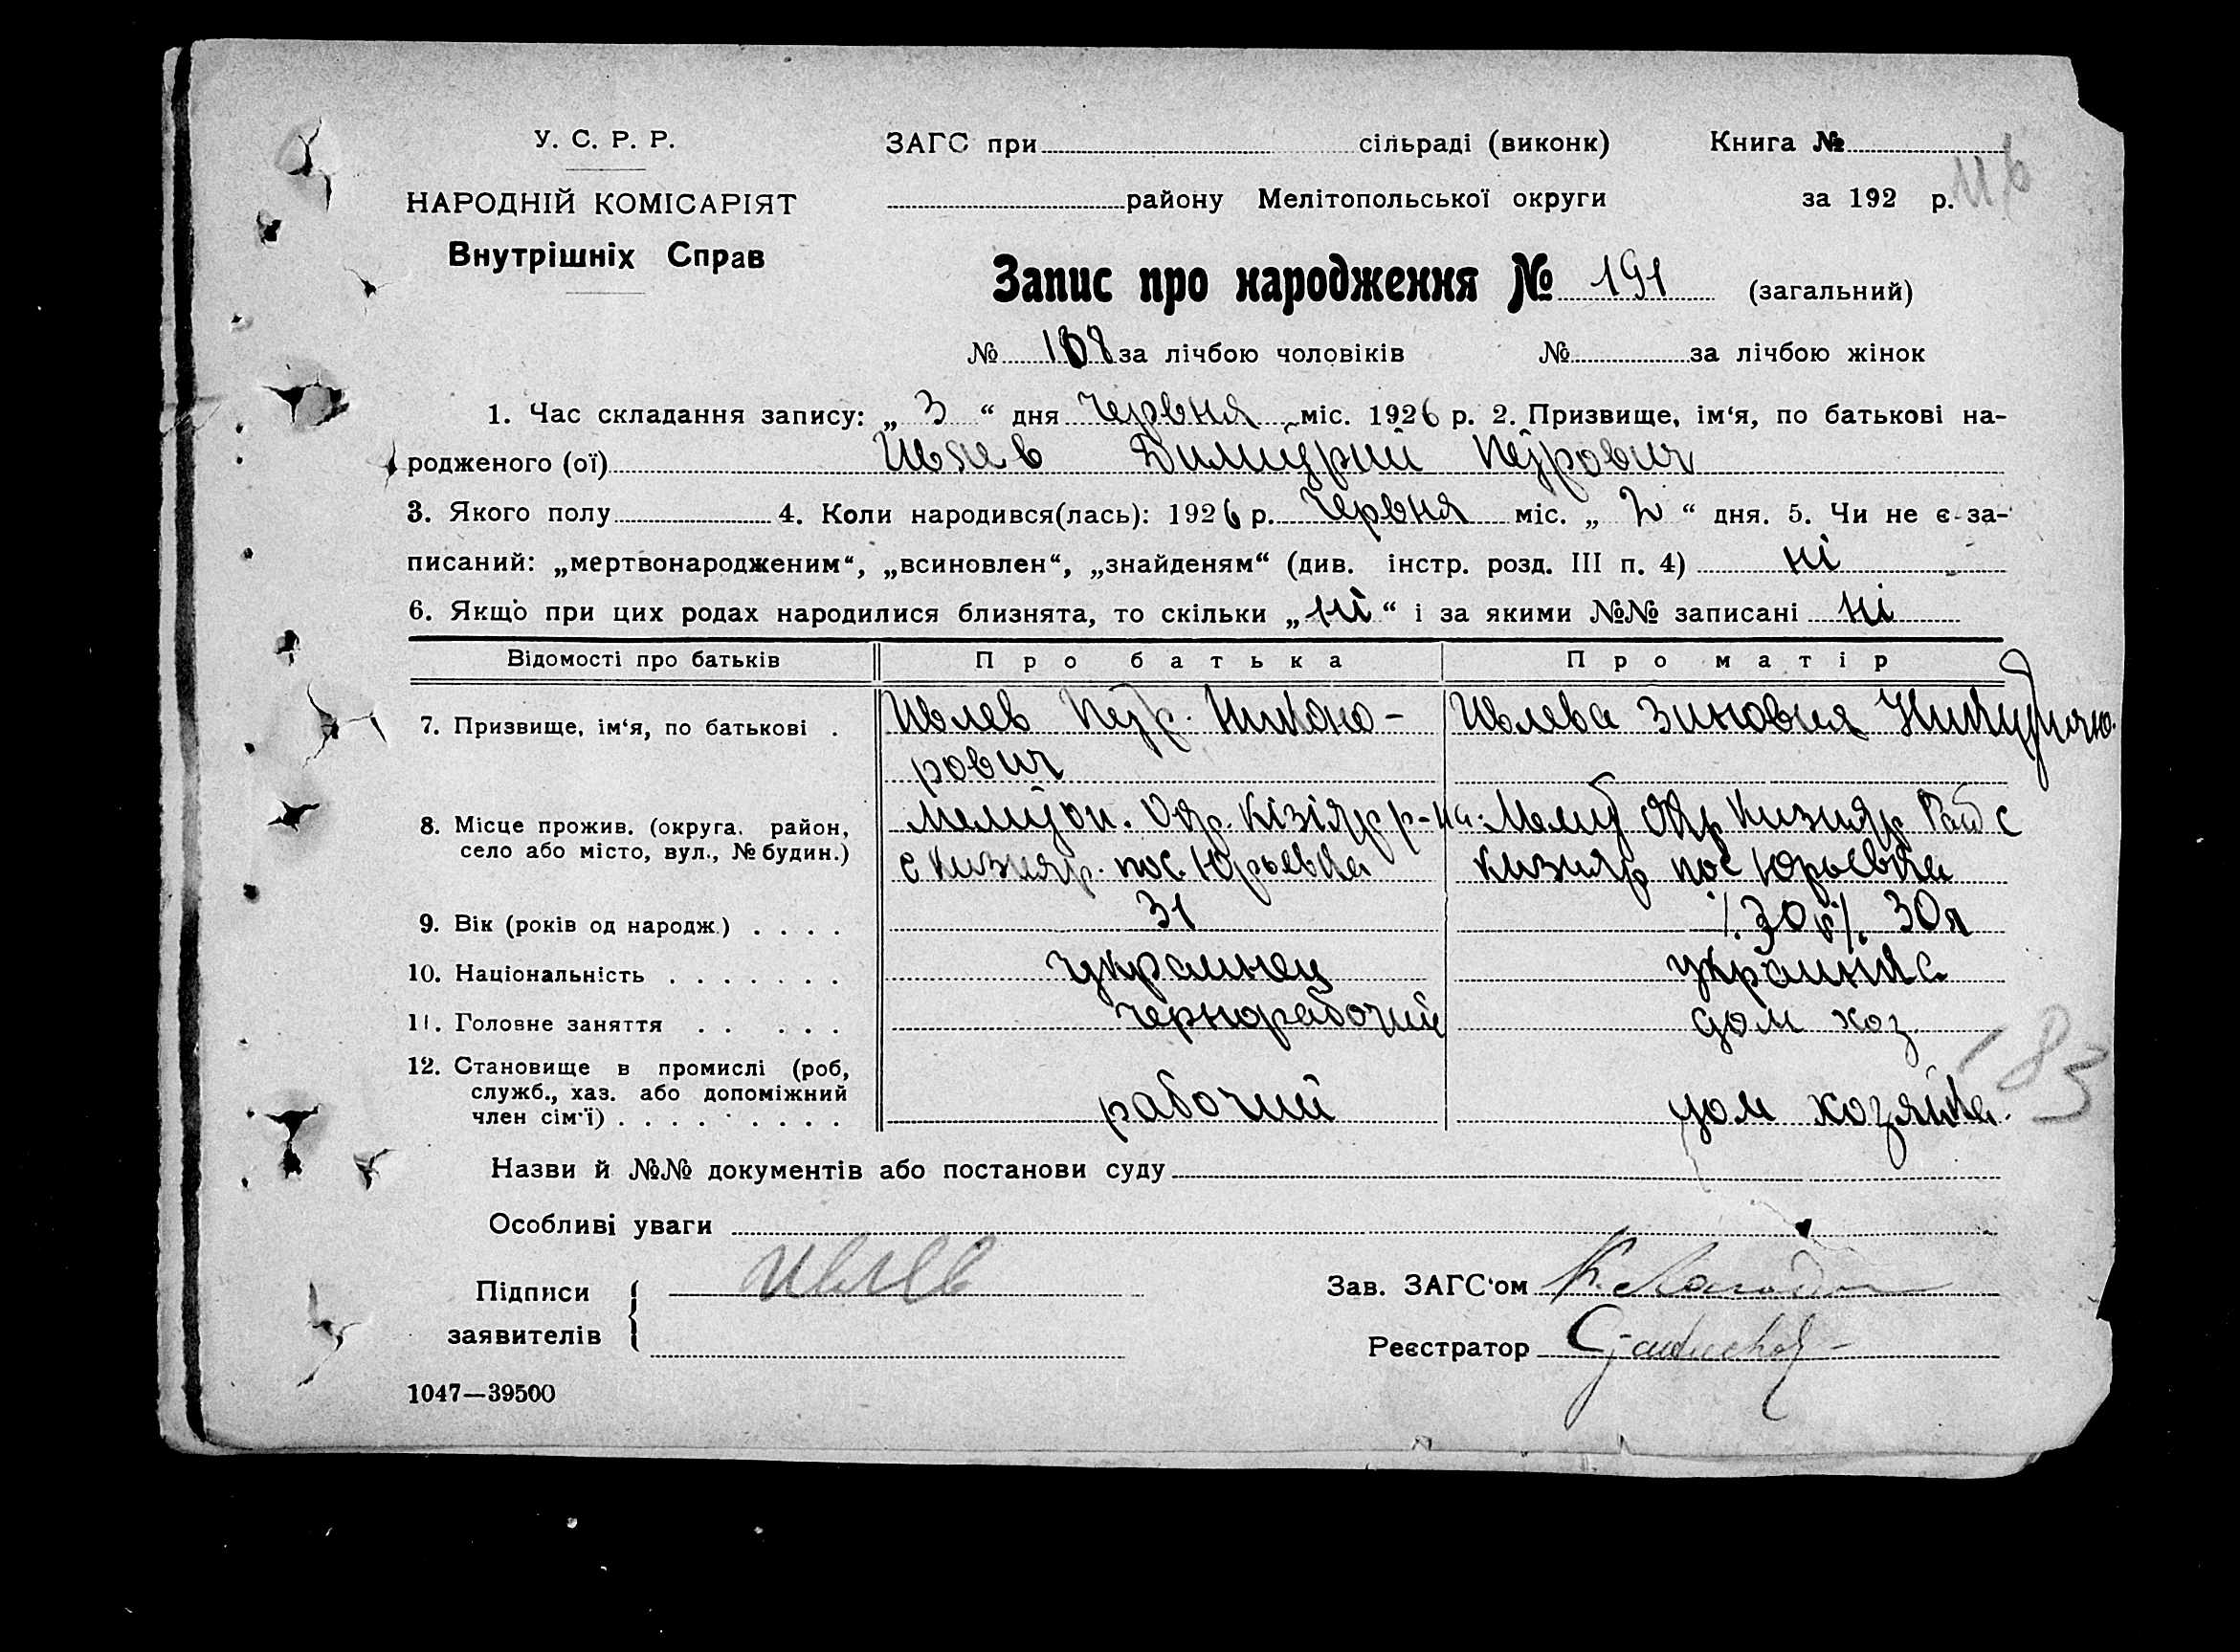 У. С. Р. Р.
НАРОДНІЙ КОМІСАРІЯТ
Внутрішніх Справ
ЗАГС при сільраді (виконк) Книга №
району Мелітопольської округи за 192 р. 116
Запис про народження № 191 (загальний)
№ 108 за лічбою чоловіків № за лічбою жінок
1. Час складання запису: „ 3 “ дня червня міс. 1926 р. 2. Призвище, ім‘я, по батькові на-
родженого (ої) Ивлев Димитрий Петрович
3. Якого полу 4. Коли народився(лась): 1926 р. червня міс. „ 2 “ дня. 5. Чи не є за-
писаний: „мертвонародженим“, „всиновлен“, „знайденям“ (див. інстр. розд. III п. 4) ні
6. Якщо при цих родах народилися близнята, то скільки „ ні “ і за якими №№ записані ні
Відомості про батьків Про батька Про матір
7. Призвище, ім‘я, по батькові . Ивлев Петр. Никано- Ивлева Зиновия
рович
8. Місце прожив. (округа. район, Мелитоп. Окр. Кізіяр р-на. Мелит Окр Кизияр Рай с
село або місто, вул., № будин.) с Кизияр. пос. Юрьевка Кизияр пос Юрьевка
9. Вік (років од народж.) . . . . 31 30 30я
10. Національність . . . . . . . украинец украинка
11. Головне заняття . . . . . чернорабочий дом хоз
12. Становище в промислі (роб,
служб., хаз. або допоміжний
член сім‘ї) . . . . . . . . рабочий дом хозяйка.
183
Назви й №№ документів або постанови суду
Особливі уваги
Підписи заявителів Ивлев
Зав. ЗАГС‘ом
Реєстратор
1047—39500